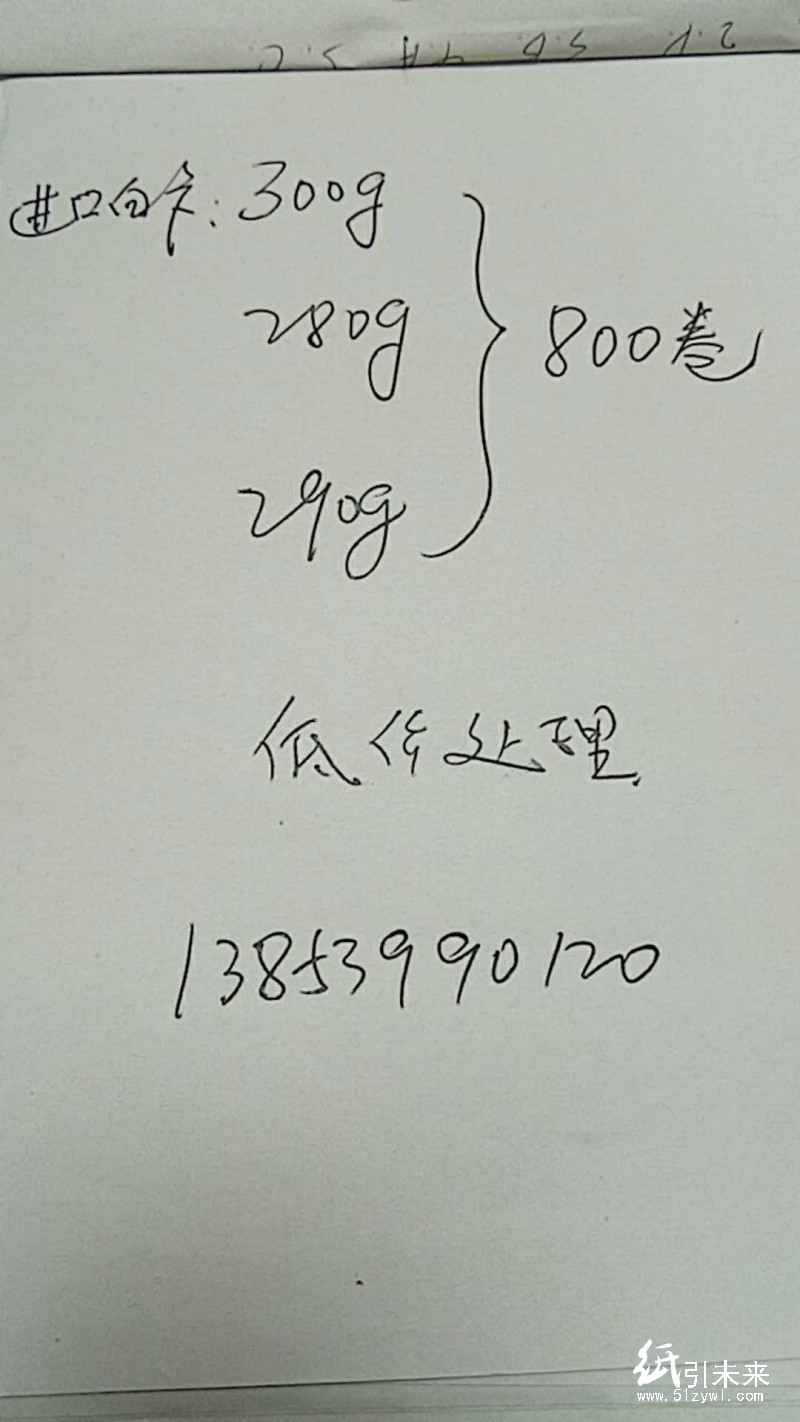 进口白卡:300g
280g
290g
800卷
低价处理
13853990120
纸引未来
www.51zywl.com